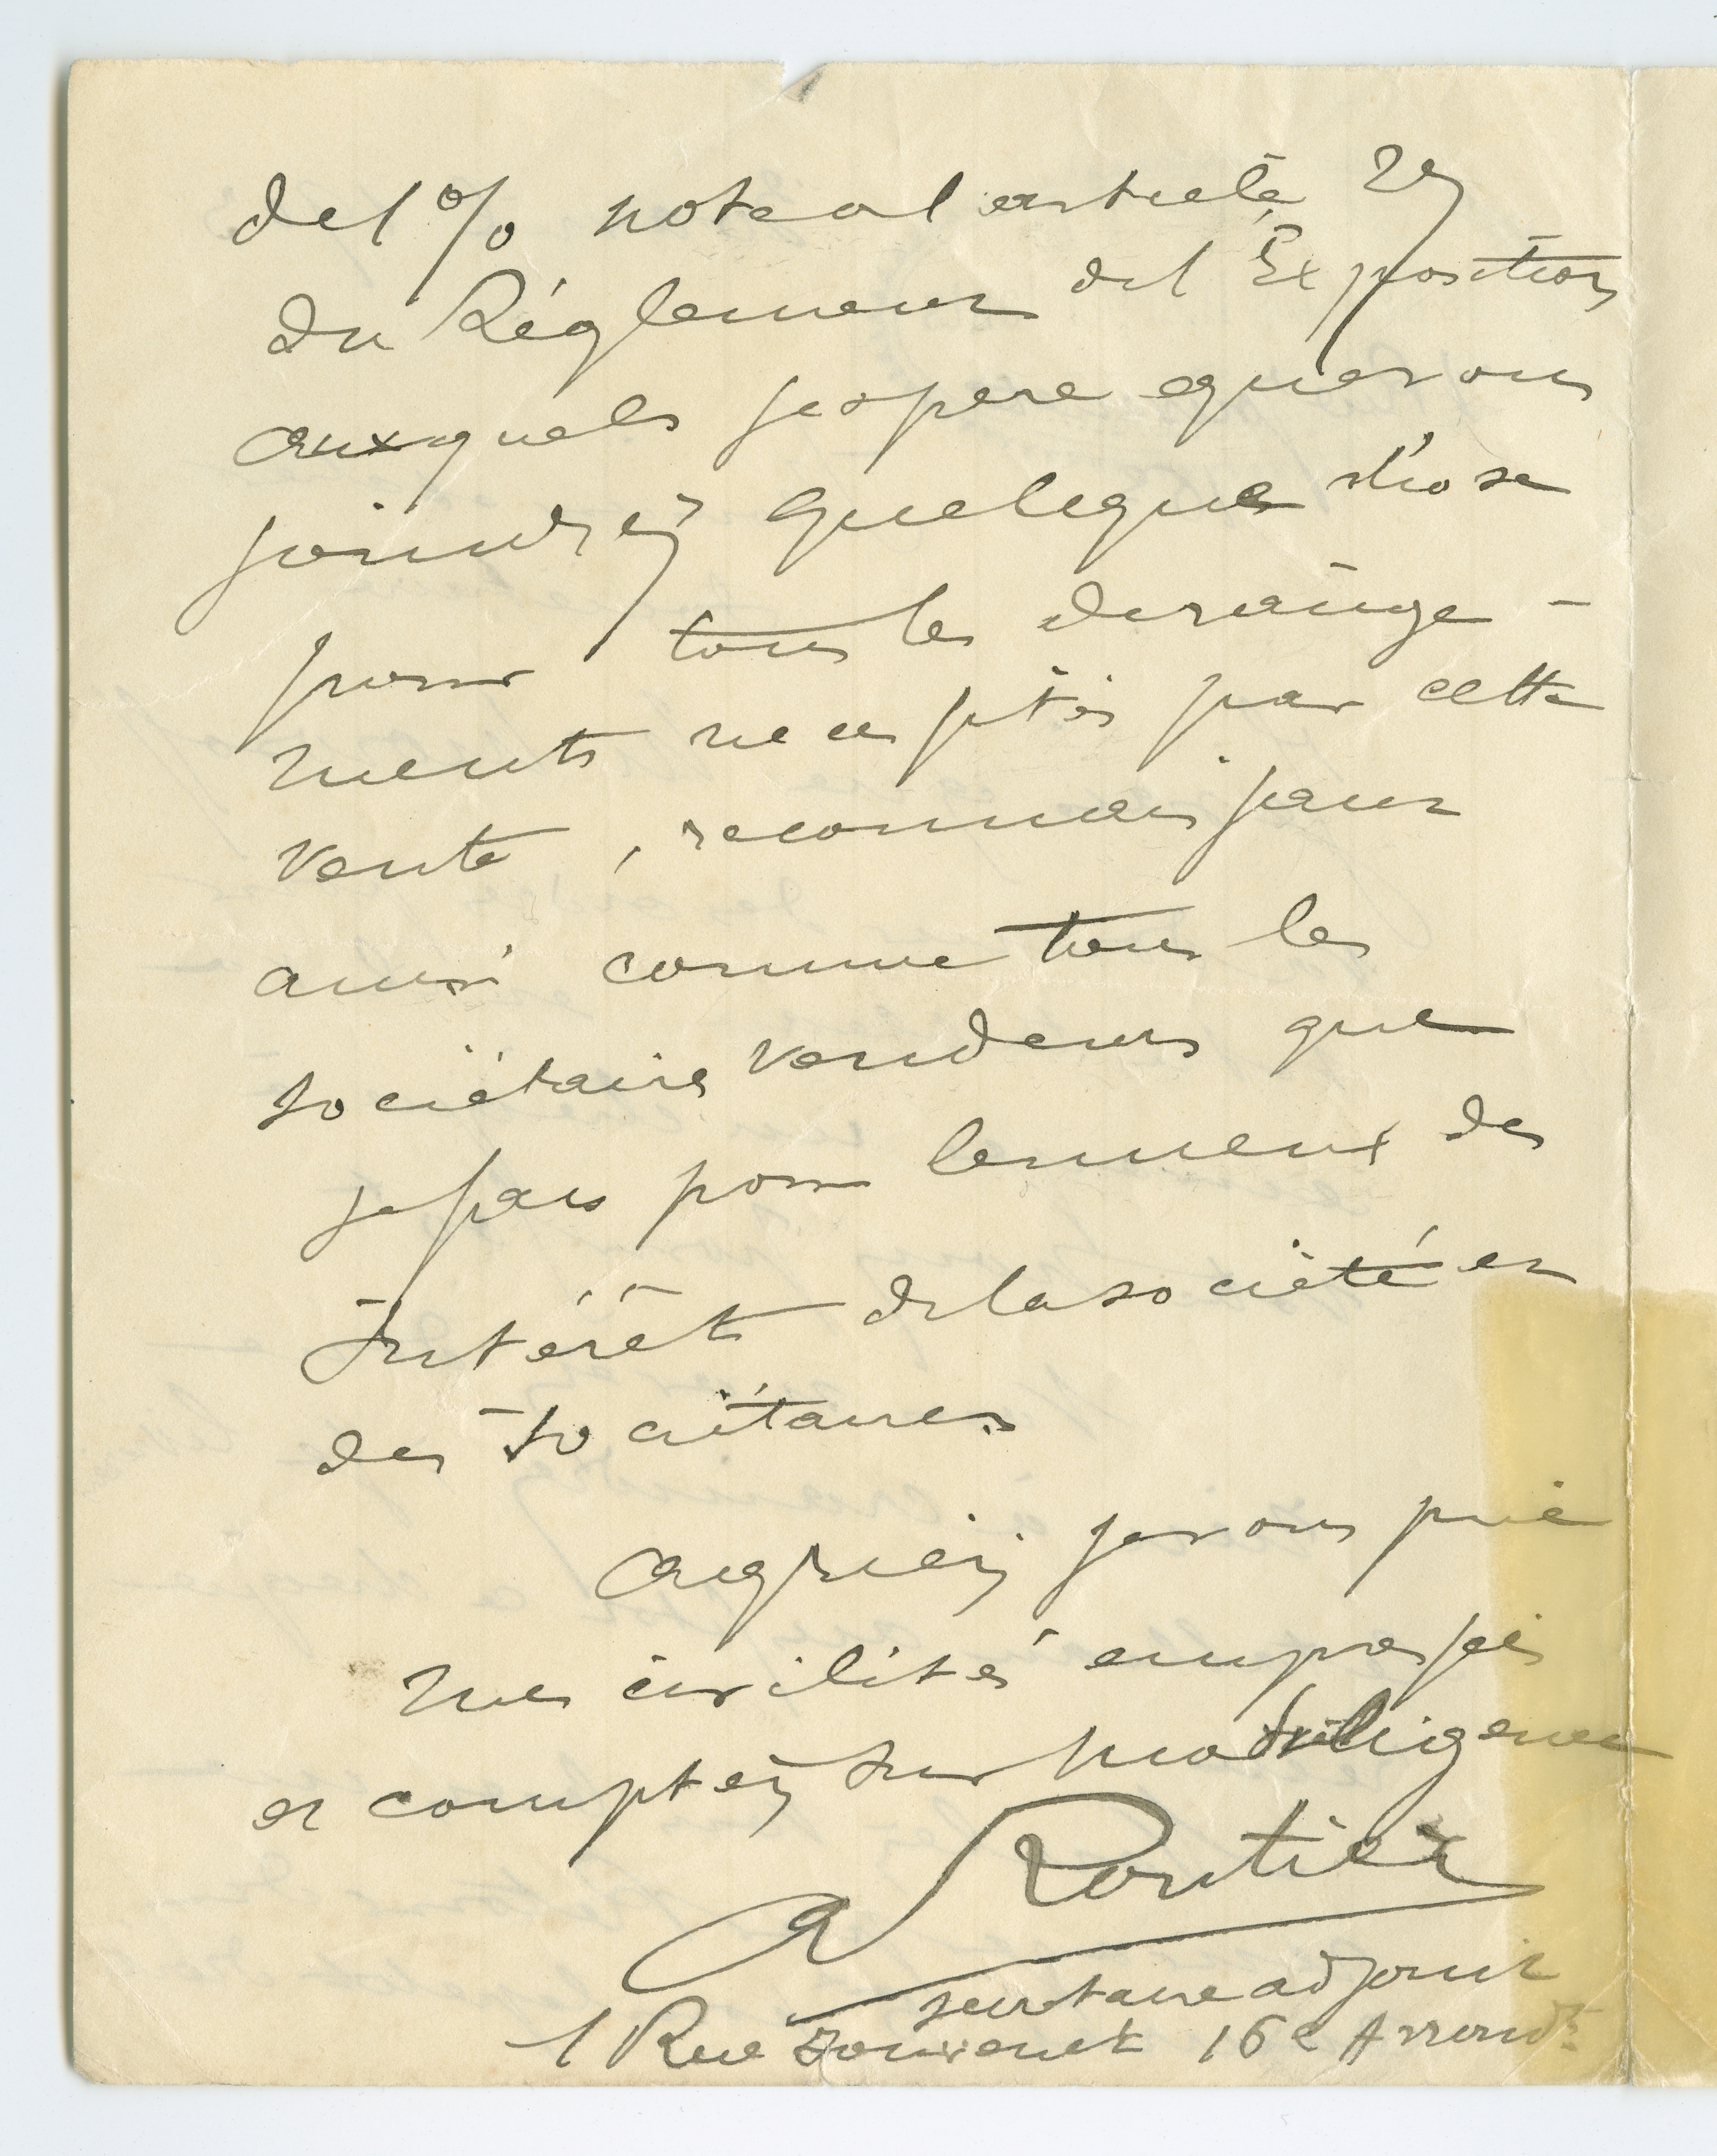 del % note a l'article 29
du Réglement del Exposition
auxquels jespere que vous
joindrez quelque chose
pour tous les derange-
ments necessités par cette
vente, reconnaissant
aussi comme tous les
sociétaires vendeurs que
je fais pour le mieux des
Intérêts de la société et
des Sociétaires
Agréez je vous prie
mes civilités empressées
et comptez sur ma diligence
A Routier
secretaire adjoint
1 Rue Jouvenet 16e Arrondt